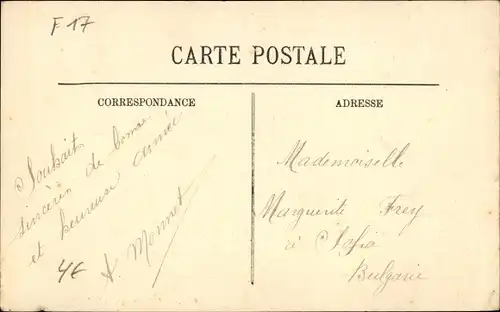 F 17
CARTE POSTALE
CORRESPONDANCE
ADRESSE
Souhaits
sincères de bonne
et heureuse année
A. Monnet
4€
Mademoiselle
Marguerite Frey
à Sofia
Bulgarie